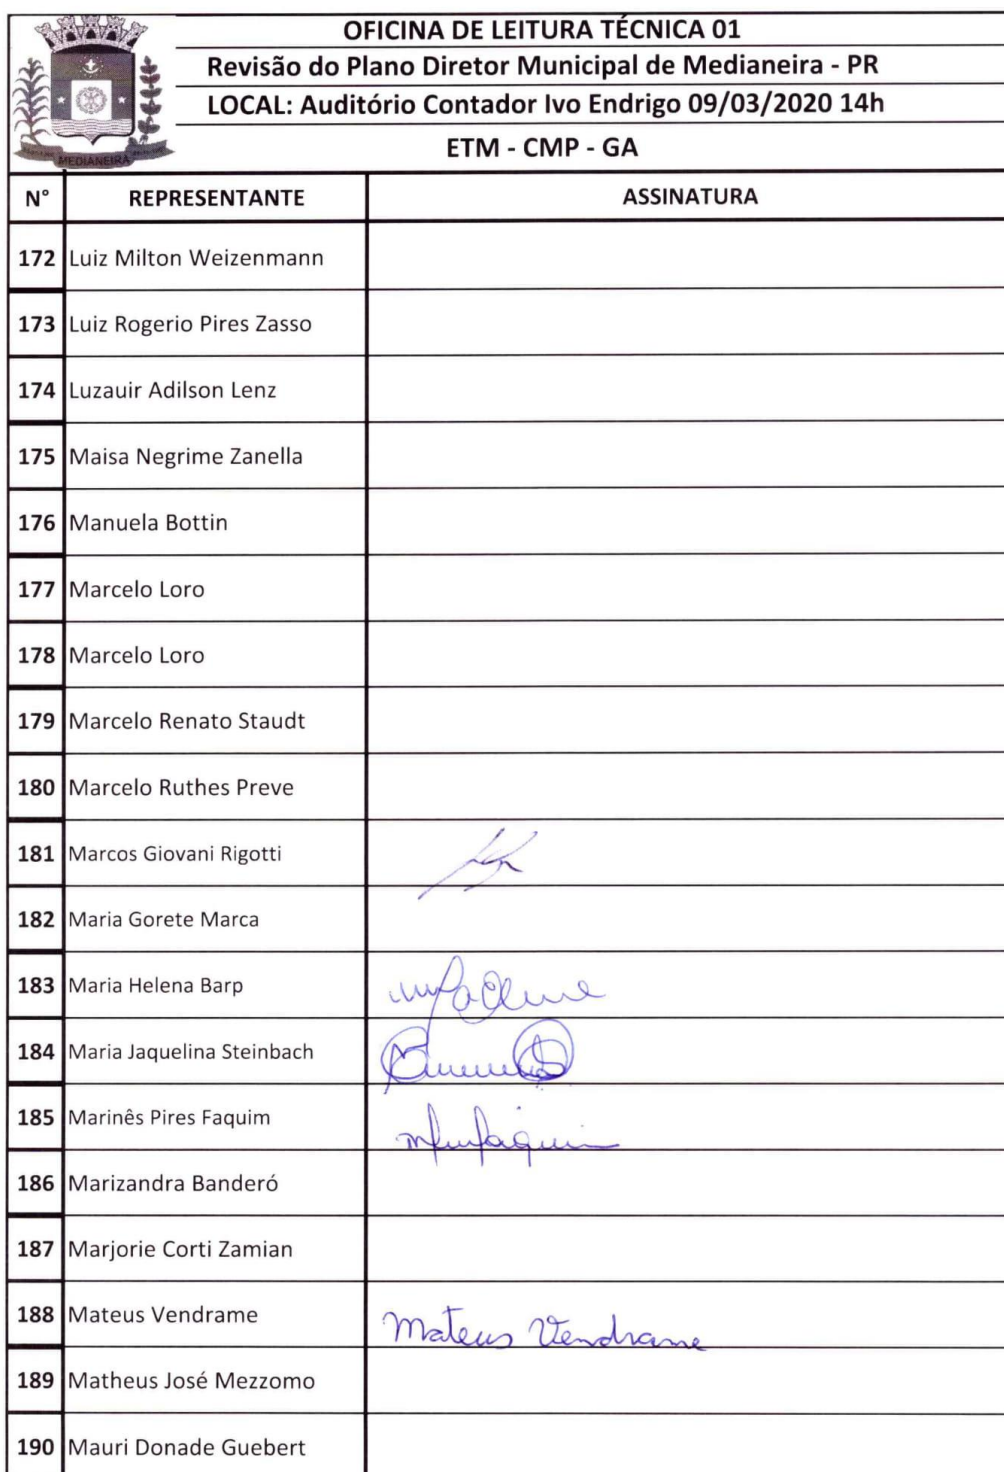 OFICINA DE LEITURA TÉCNICA 01
Revisão do Plano Diretor Municipal de Medianeira - PR
LOCAL: Auditório Contador Ivo Endrigo 09/03/2020 14h
ETM - CMP - GA
MEDIANEIRA
N° REPRESENTANTE ASSINATURA
172 Luiz Milton Weizenmann
173 Luiz Rogerio Pires Zasso
174 Luzauir Adilson Lenz
175 Maisa Negrime Zanella
176 Manuela Bottin
177 Marcelo Loro
178 Marcelo Loro
179 Marcelo Renato Staudt
180 Marcelo Ruthes Preve
181 Marcos Giovani Rigotti
182 Maria Gorete Marca
183 Maria Helena Barp
184 Maria Jaquelina Steinbach
185 Marinês Pires Faquim
186 Marizandra Banderó
187 Marjorie Corti Zamian
188 Mateus Vendrame Mateus Vendrame
189 Matheus José Mezzomo
190 Mauri Donade Guebert